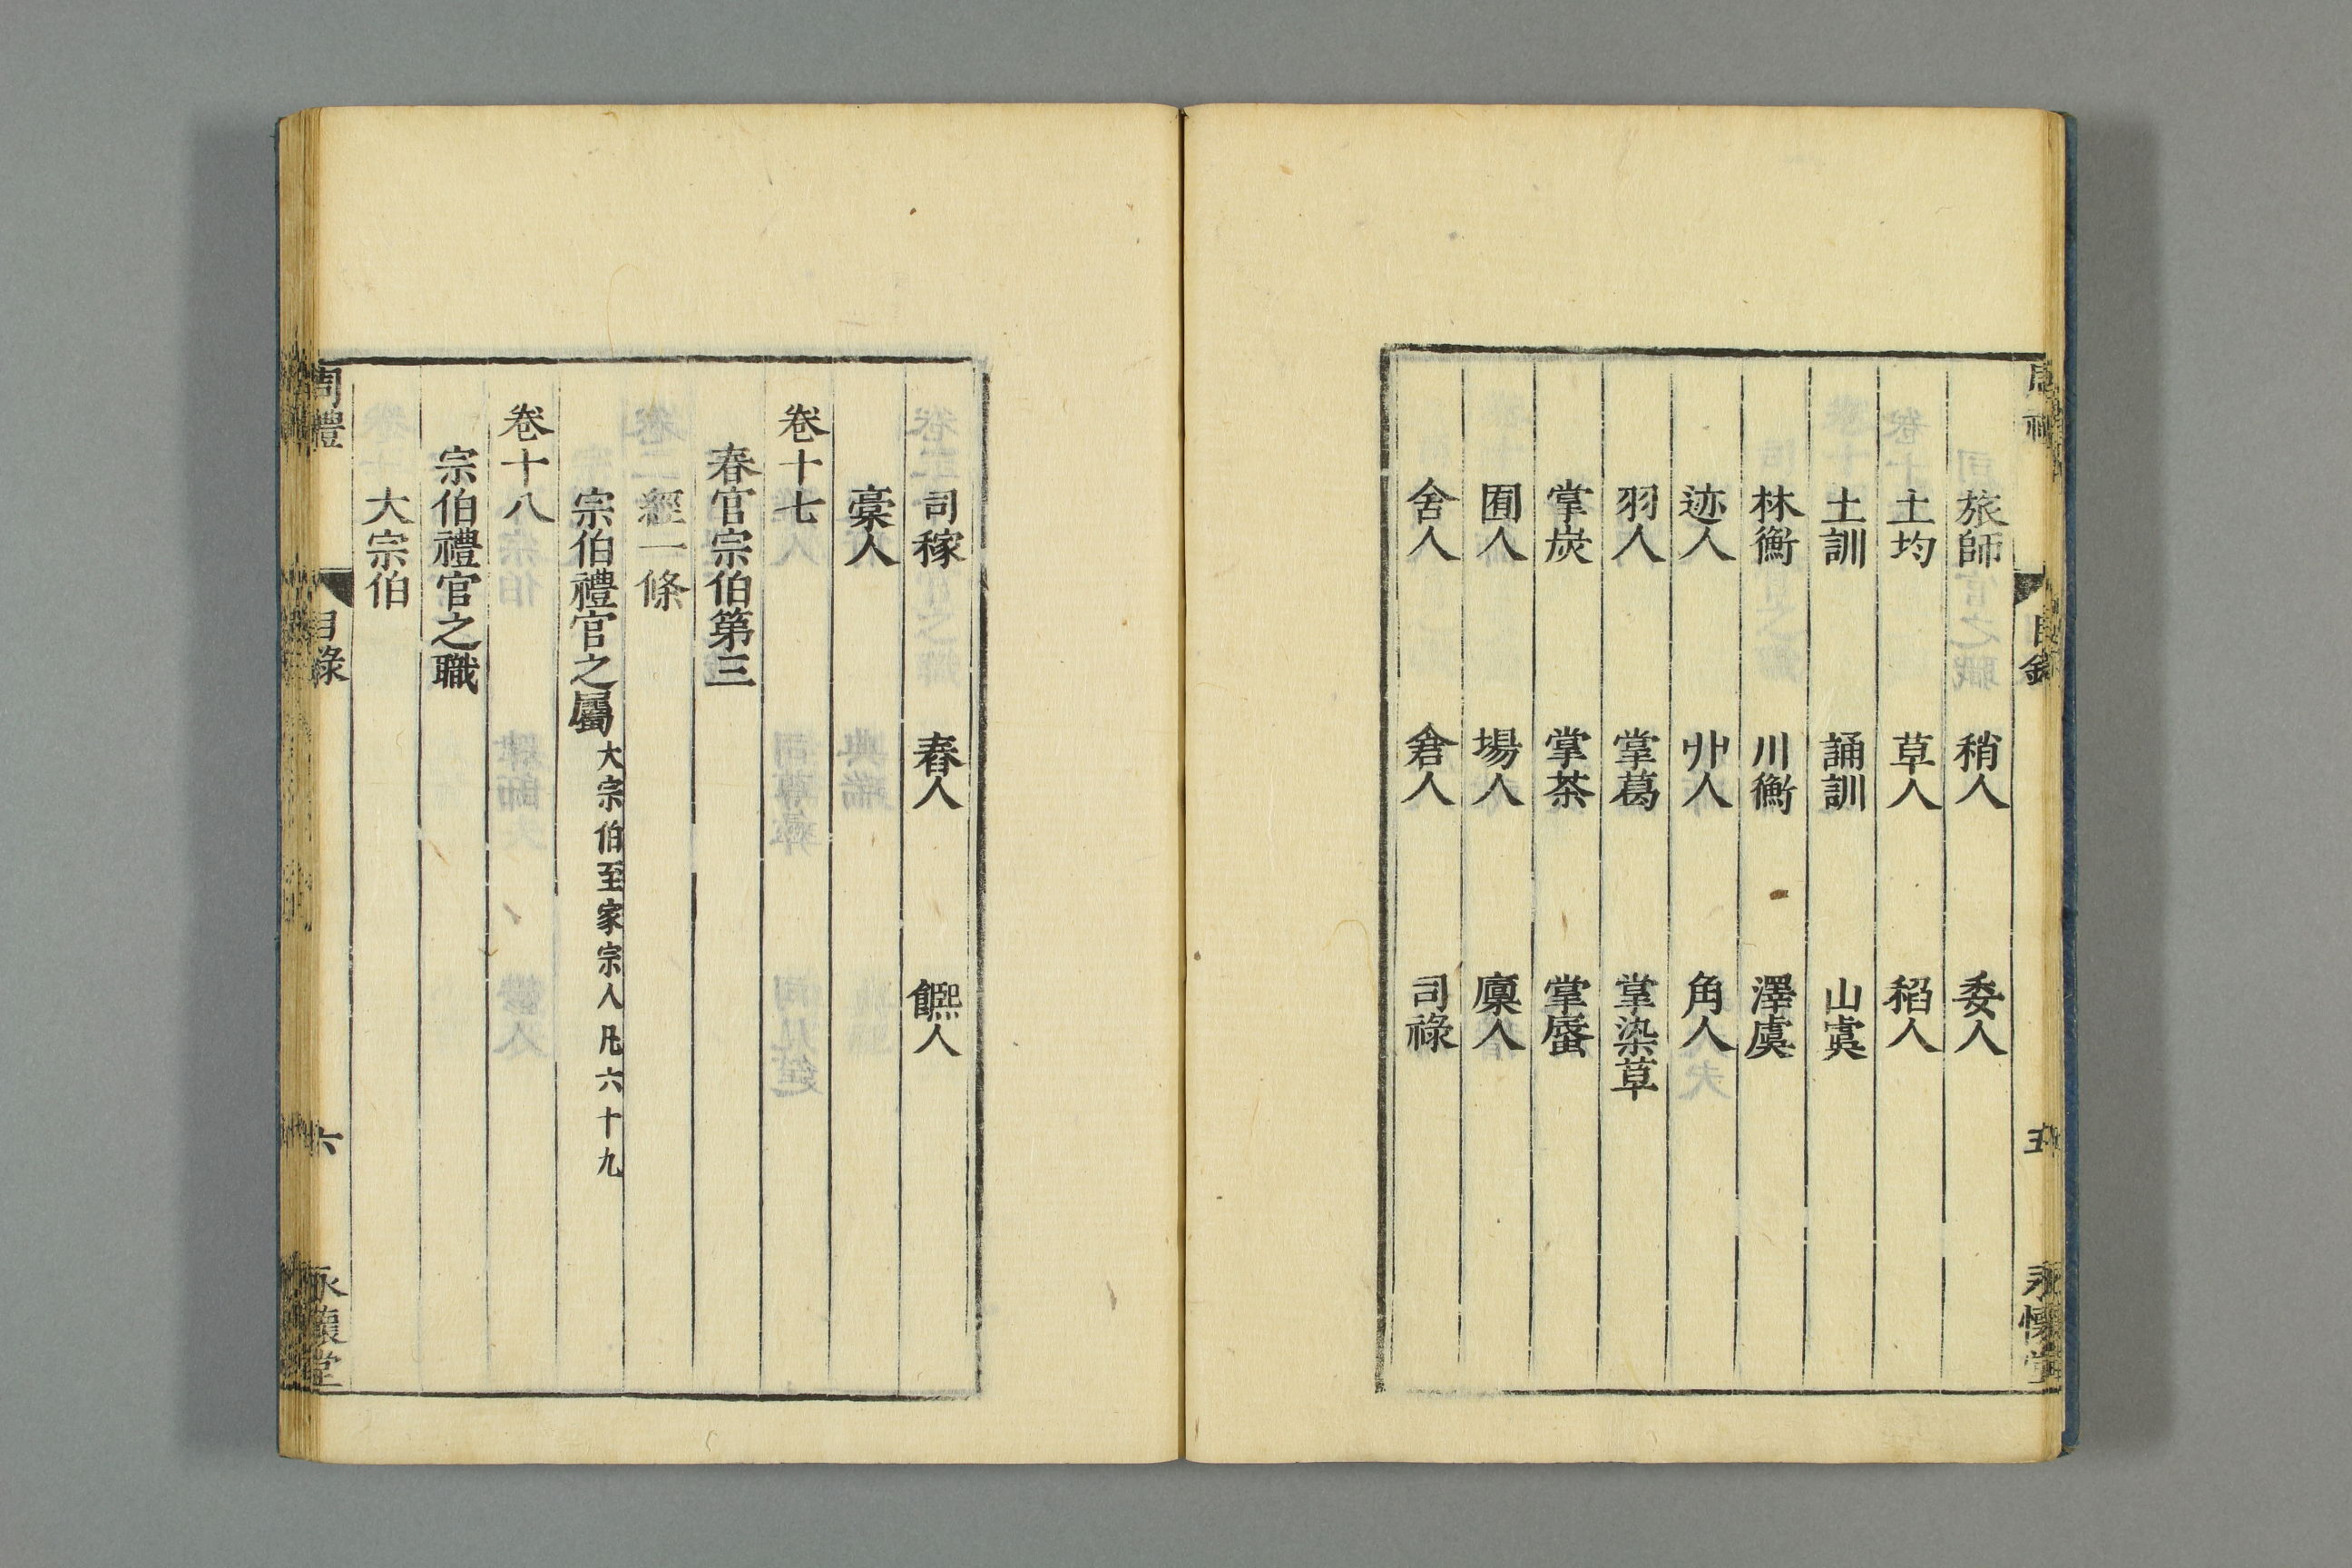 旅師 稍人 委人
土均 草人 稻人
土訓 誦訓 山虞
林衡 川衡 澤虞
迹人 丱人 角人
羽人 掌葛 掌染草
掌炭 掌茶 掌蜃
囿人 場人 廩人
舍人 倉人 司祿
司稼 舂人 饎人
稾人
卷十七
春官宗伯第三
經一條
宗伯禮官之屬 大宗伯至家宗人凡六十九
卷十八
宗伯禮官之職
大宗伯
周禮 目錄 六 永懷堂